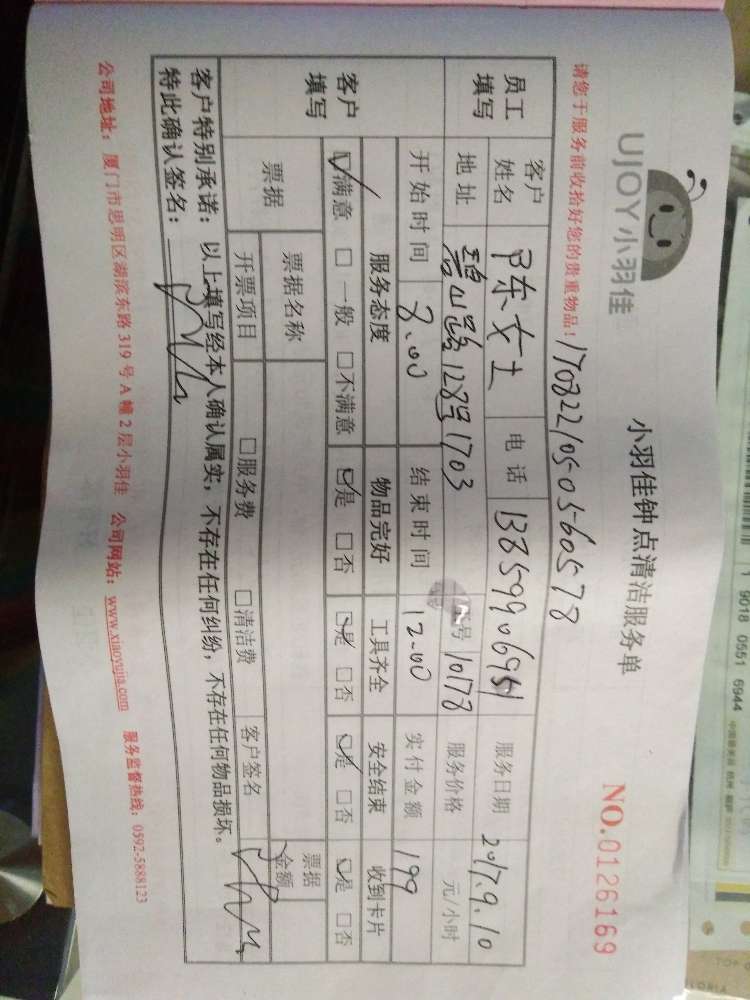 UJOY小羽佳
小羽佳钟点清洁服务单
NO.0126169
请您于服务前收拾好您的贵重物品!
1708221050560578
员工填写
客户姓名 陈女士 电话 13859906951 服务日期 2017.9.10
地址 碧山路128号1703 号 10178 服务价格 元/小时
开始时间 8.00 结束时间 12.00 实付金额 199
客户填写
服务态度 物品完好 工具齐全 安全结束 收到卡片
☑满意 □一般 □不满意 ☑是 □否 ☑是 □否 ☑是 □否 ☑是 □否
票据 票据名称 票据金额
开票项目 □服务费 □清洁费 客户签名
客户特别承诺: 以上填写经本人确认属实,不存在任何纠纷,不存在任何物品损坏。
特此确认签名:
公司地址: 厦门市思明区湖滨东路319号A幢2层小羽佳 公司网站: www.xiaoyujia.com 服务监督热线: 0592-5888123
1 9018 0551 6944